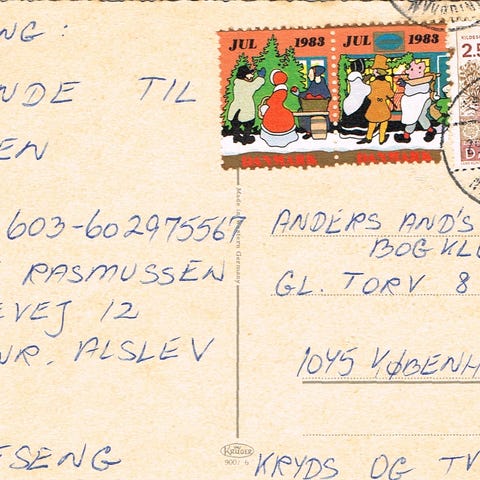 NG:
NDE TIL
EN
603-602975567
RASMUSSEN
EVEJ 12
NR. ALSLEV
FSENG
JUL 1983
JUL 1983
DANMARK
DANMARK
2.5
ANDERS AND'S
BOGKLU
GL. TORV 8
1045 KØBENH
KRYDS OG TV
KRÜGER
900/6